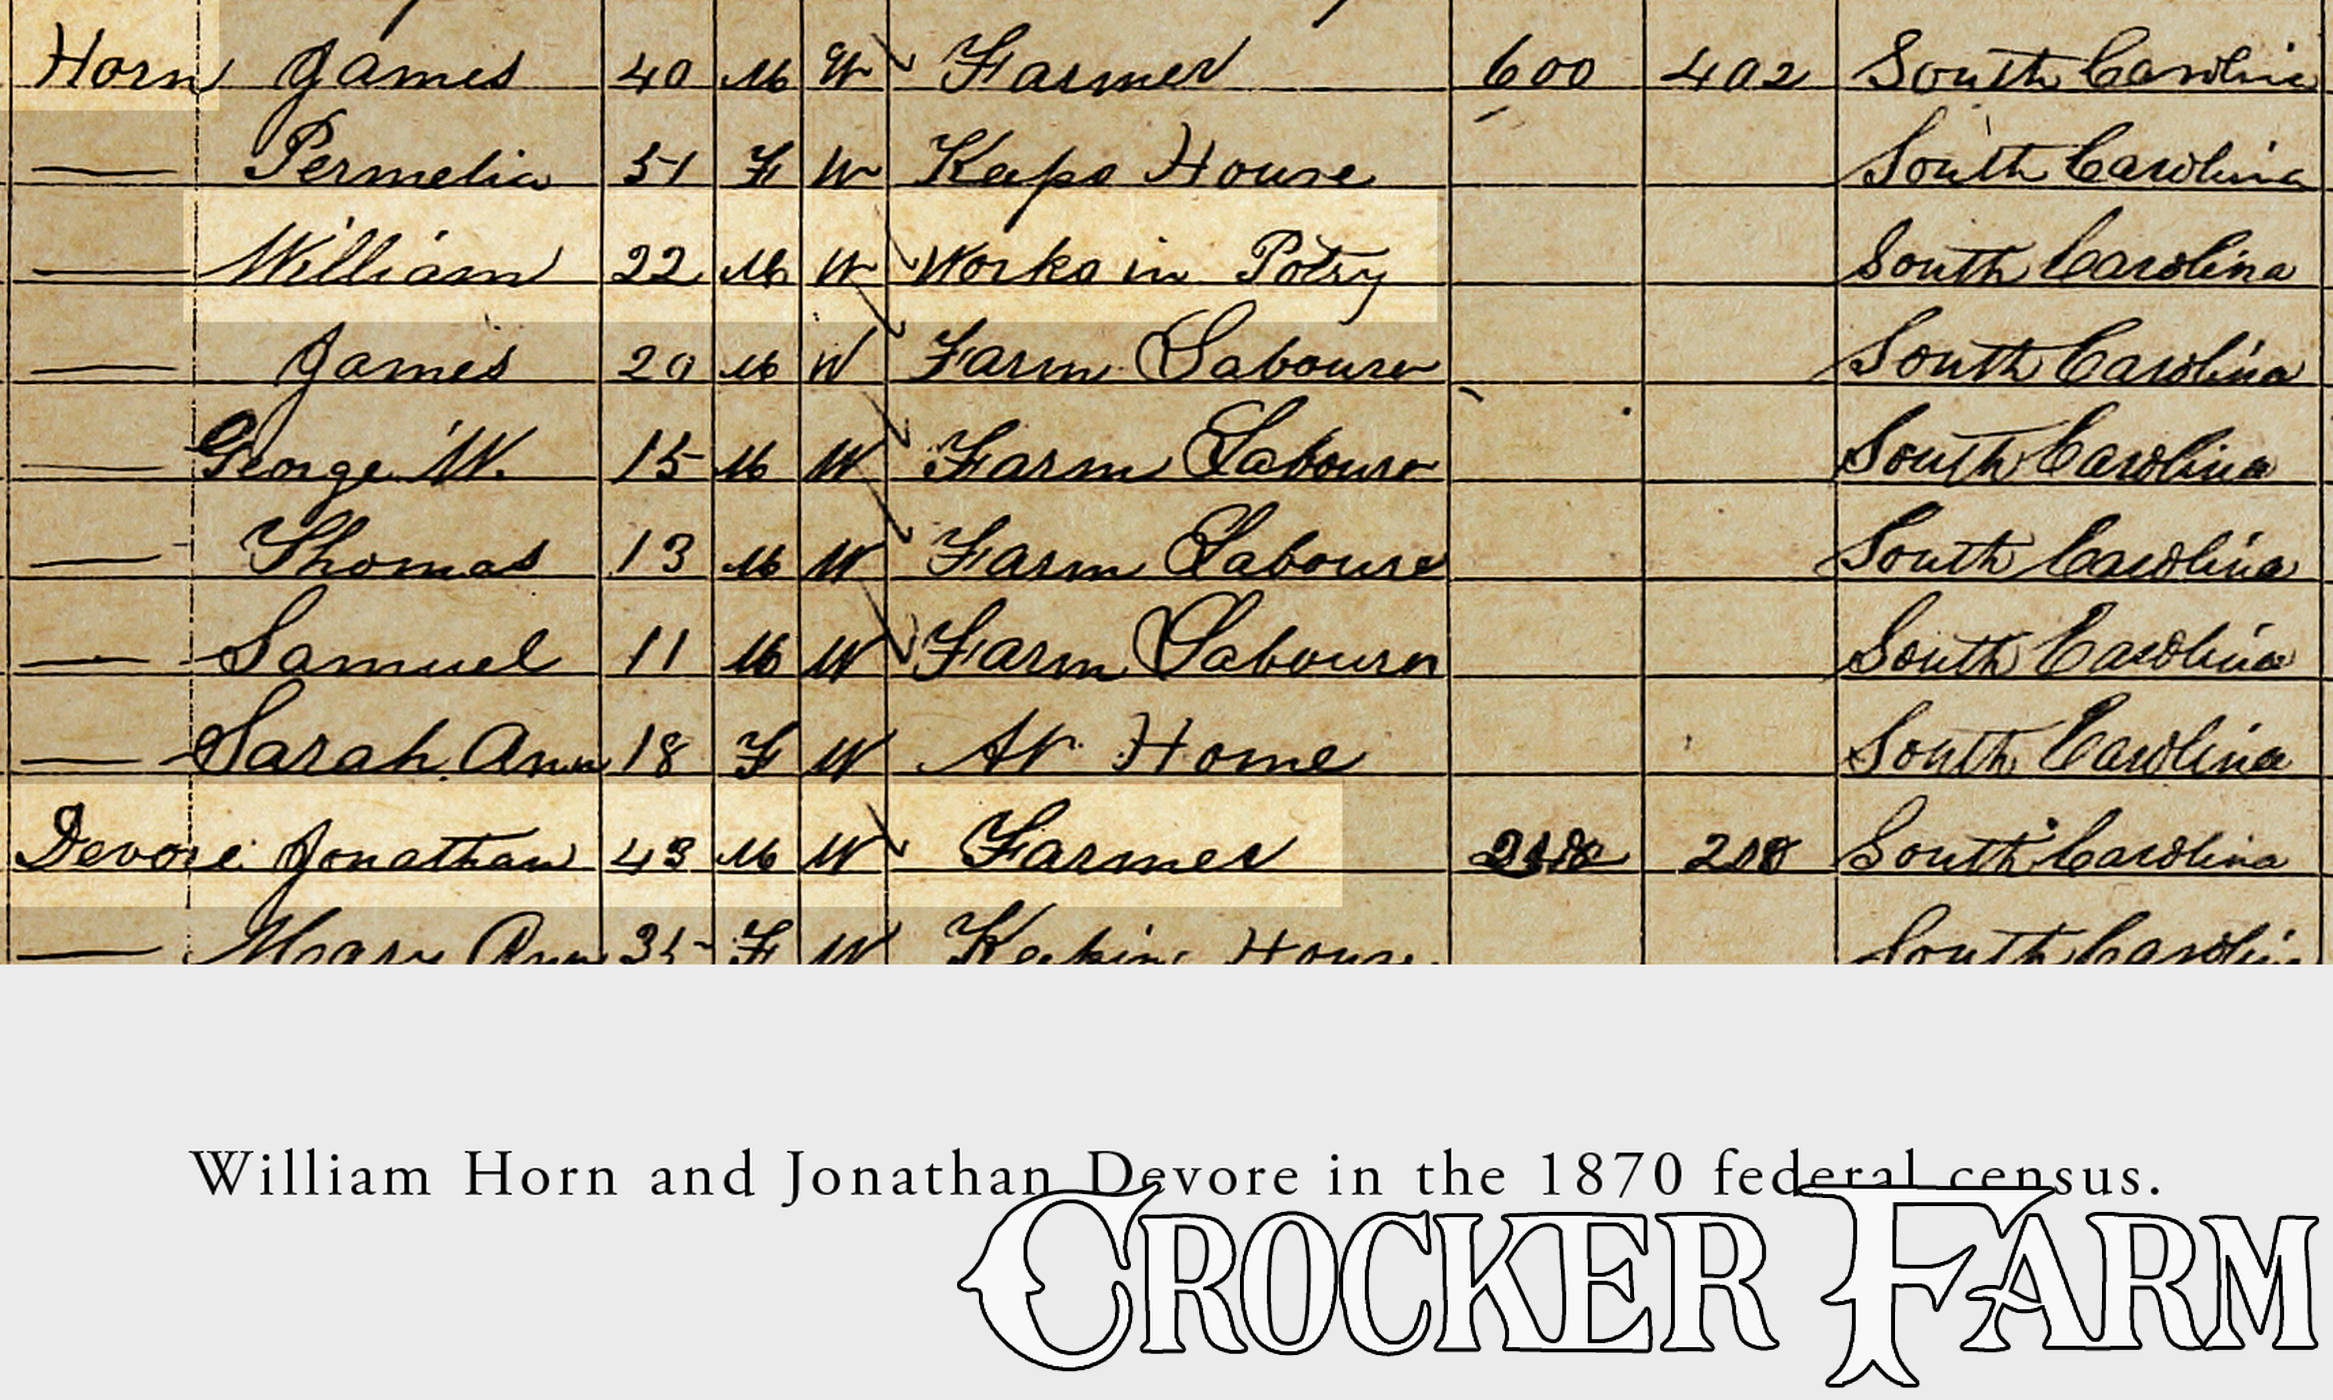 Horn James 40 M W Farmer 600 402 South Carolina
— Permelia 51 F W Keeps House South Carolina
— William 22 M W Works in Potry South Carolina
— James 20 M W Farm Labourer South Carolina
— George W. 15 M W Farm Labourer South Carolina
— Thomas 13 M W Farm Labourer South Carolina
— Samuel 11 M W Farm Labourer South Carolina
— Sarah Ann 18 F W At Home South Carolina
Devore Jonathan 43 M W Farmer South Carolina
— Mary Ann 35 F W Keeping House South Carolina
William Horn and Jonathan Devore in the 1870 federal census.
CROCKER FARM